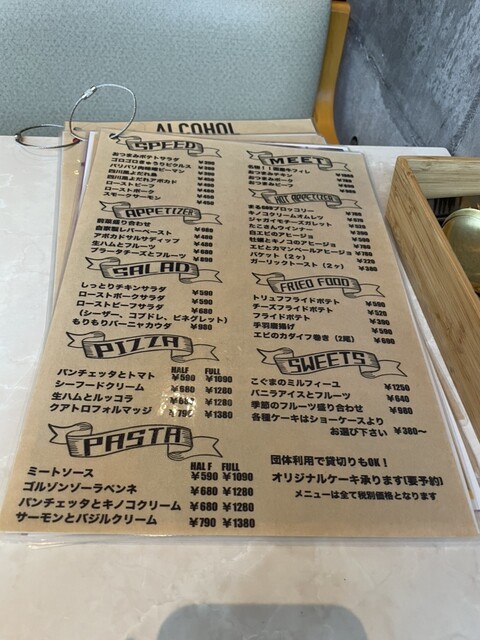 ALCOHOL
SPEED
おつまみポテトサラダ
ゴロゴロきゅうりピクルス
パリパリ肉味噌ピーマン
四川風よだれ鶏
四川風よだれアボカド
ローストビーフ
ローストポーク
スモークサーモン
APPETIZER
前菜盛り合わせ ¥980
自家製レバーペースト
アボカドサルサディップ ¥480
生ハムとフルーツ
ブラータチーズとフルーツ
SALAD
しっとりチキンサラダ ¥590
ローストポークサラダ ¥590
ローストビーフサラダ ¥680
(シーザー、コブドレ、ビネグレット)
もりもりバーニャカウダ ¥980
PIZZA
HALF FULL
パンチェッタとトマト ¥590 ¥1090
シーフードクリーム ¥680 ¥1280
生ハムとルッコラ ¥680 ¥1280
クアトロフォルマッジ ¥790 ¥1380
PASTA
HALF FULL
ミートソース ¥590 ¥1090
ゴルゾンゾーラペンネ ¥680 ¥1280
パンチェッタとキノコクリーム ¥680 ¥1280
サーモンとバジルクリーム ¥790 ¥1380
MEET
おつまみチキン
おつまみポーク
おつまみビーフ
HOT APPETIZER
まるごとブロッコリー
キノコクリームオムレツ
ジャガイモチーズガレット
たこさんウインナー
白エビのアヒージョ
牡蠣とキノコのアヒージョ
エビとカマンベールアヒージョ
バケット(2ヶ) ¥220
ガーリックトースト(2ヶ) ¥380
FRIED FOOD
トリュフフライドポテト ¥590
チーズフライドポテト ¥520
フライドポテト ¥390
手羽唐揚げ ¥590
エビのカダイフ巻き(2尾) ¥690
SWEETS
こぐまのミルフィーユ ¥1250
バニラアイスとフルーツ ¥640
季節のフルーツ盛り合わせ ¥980
各種ケーキはショーケースより
お選び下さい ¥380〜
団体利用で貸切りもOK!
オリジナルケーキ承ります(要予約)
メニューは全て税別価格となります